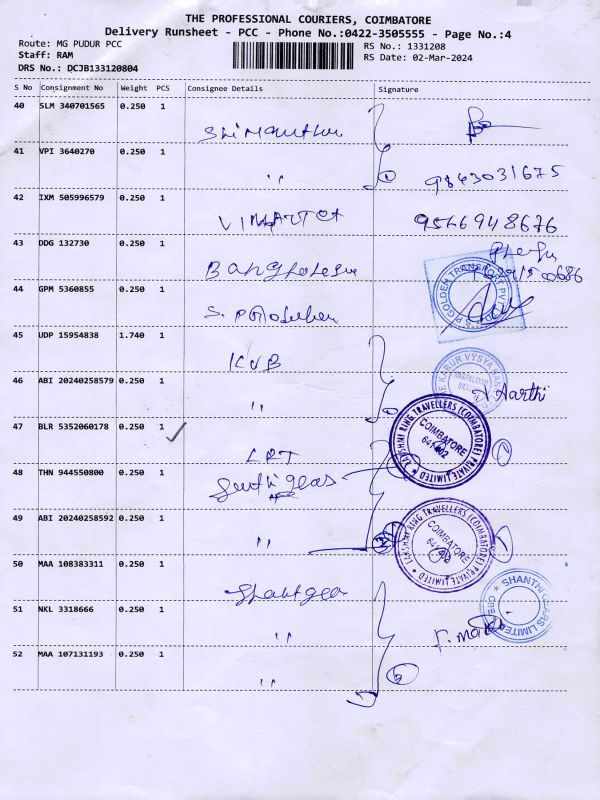 THE PROFESSIONAL COURIERS, COIMBATORE
Delivery Runsheet - PCC - Phone No.:0422-3505555 - Page No.:4
Route: MG PUDUR PCC RS No.: 1331208
Staff: RAM RS Date: 02-Mar-2024
DRS No.: DCJB133120804
S No Consignment No Weight PCS Consignee Details Signature
40 SLM 340701565 0.250 1
41 VPI 3640270 0.250 1
" 9843031675
42 IXM 505996579 0.250 1
9566948676
43 DDG 132730 0.250 1
44 GPM 5360855 0.250 1
GOLDEN TRANSPORT PVT
45 UDP 15954838 1.740 1
KVB
KARUR VYSYA BANK
46 ABI 20240258579 0.250 1
" Aarthi
47 BLR 5352060178 0.250 1
LRT
LAKSHMI RING TRAVELLERS (COIMBATORE) PRIVATE LIMITED
COIMBATORE
641 402
48 THN 944550800 0.250 1
49 ABI 20240258592 0.250 1
"
LAKSHMI RING TRAVELLERS (COIMBATORE) PRIVATE LIMITED
COIMBATORE
50 MAA 108383311 0.250 1
SHANTHI GEARS LIMITED
51 NKL 3318666 0.250 1
"
52 MAA 107131193 0.250 1
"